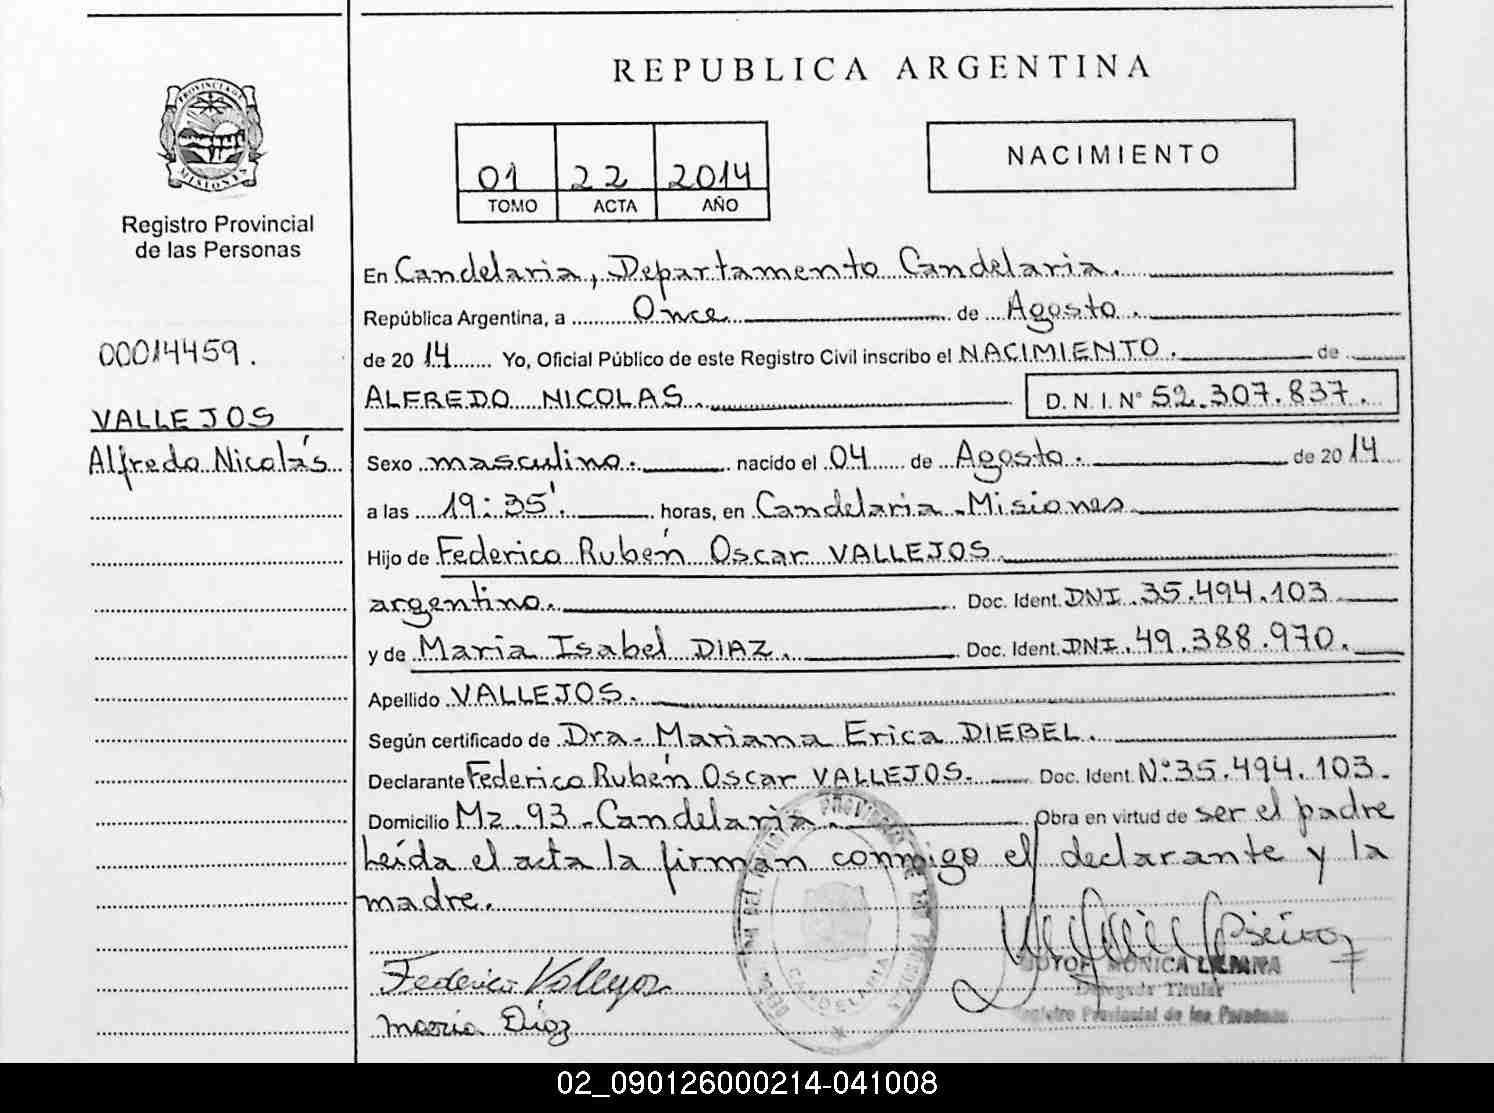 PROVINCIA DE
MISIONES
Registro Provincial
de las Personas
00014459.
VALLEJOS
Alfredo Nicolás
REPUBLICA ARGENTINA
01 22 2014
TOMO ACTA AÑO
NACIMIENTO
En Candelaria, Departamento Candelaria.
República Argentina, a Once de Agosto.
de 2014 Yo, Oficial Público de este Registro Civil inscribo el NACIMIENTO. de
ALFREDO NICOLAS. D. N. I. N° 52.307.837.
Sexo masculino. nacido el 04 de Agosto. de 2014
a las 19:35'. horas, en Candelaria - Misiones
Hijo de Federico Rubén Oscar VALLEJOS
argentino. Doc. Ident. DNI. 35.494.103
y de Maria Isabel DIAZ. Doc. Ident. DNI. 49.388.970.
Apellido VALLEJOS.
Según certificado de Dra. Mariana Erica DIEBEL.
Declarante Federico Rubén Oscar VALLEJOS. Doc. Ident. N° 35.494.103.
Domicilio Mz. 93 - Candelaria. Obra en virtud de ser el padre
Leída el acta la firman conmigo el declarante y la
madre.
Federico Vallejos
Maria Diaz
CANDELARIA
MONICA LILIANA
Delegada Titular
Registro Provincial de las Personas
02_090126000214-041008